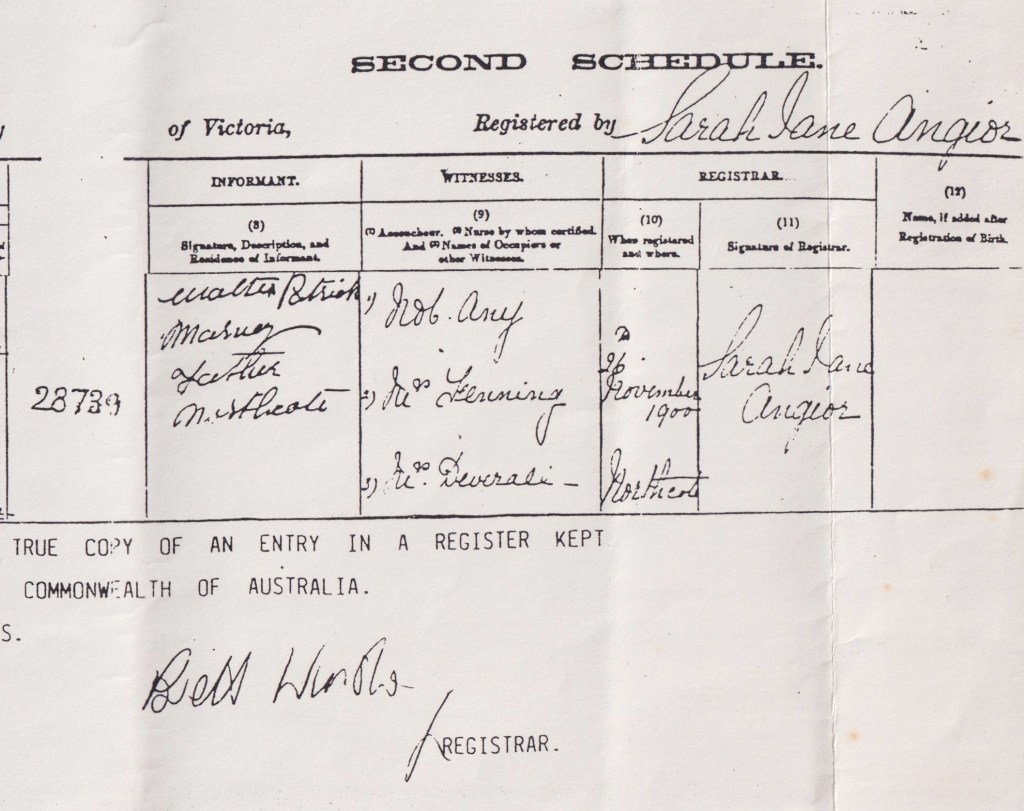 SECOND SCHEDULE.
of Victoria, Registered by Sarah Jane Angior
INFORMANT. WITNESSES. REGISTRAR.
(8)
Signature, Description, and
Residence of Informant.
(9)
(1) Accoucheur. (2) Nurse by whom certified.
And (3) Names of Occupiers or
other Witnesses.
(10)
When registered
and where.
(11)
Signature of Registrar.
(12)
Name, if added after
Registration of Birth.
28739
Walter Patrick
Father
Northcote
1) Not Any
2) Mrs Fenning
3) Mrs
26
November
1900
Northcote
Sarah Jane
Angior
TRUE COPY OF AN ENTRY IN A REGISTER KEPT
COMMONWEALTH OF AUSTRALIA.
S.
REGISTRAR.